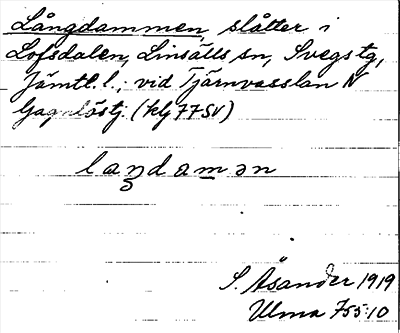 Långdammen, slåtter i
Lofsdalen, Linsälls sn, Svegs tg,
Jämtl. l.; vid Tjärnvasslan N
Gagnlöstj. (kg 77 SV)
laŋdamən
S. Åsander 1919
Ulma 755:10